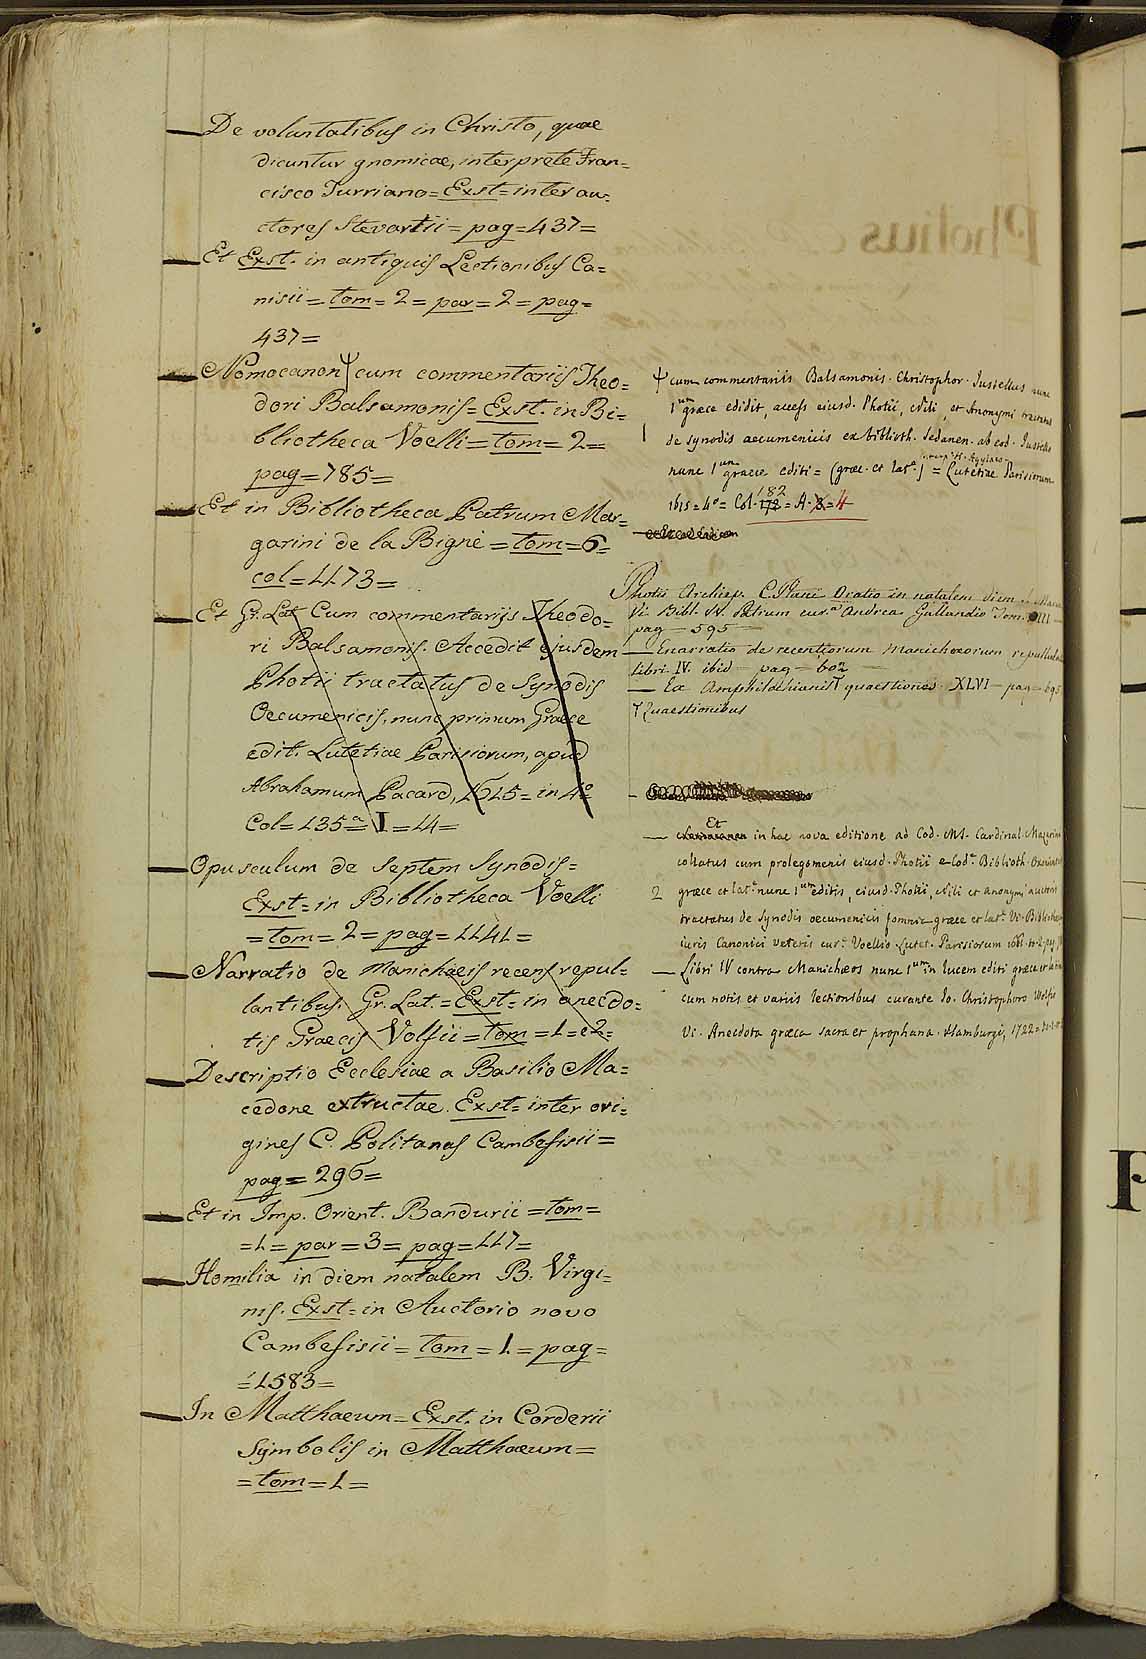 De voluntatibus in Christo, quae
dicuntur gnomicae, interprete Fran=
cisco Turriano = Exst = inter au=
ctores Stevartii = pag = 437 =
Et Exst. in antiquis Lectionibus Ca=
nisii = tom = 2 = par = 2 = pag =
437 =
Nomocanon Ψ cum commentariis Theo=
dori Balsamonis = Exst. in Bi=
bliotheca Voelli = tom = 2 =
pag = 785 =
Et in Bibliotheca Patrum Mar=
garini de la Bigne = tom = 6 =
col = 1173 =
Et Gr. Lat. Cum commentarijs Theodo=
ri Balsamonis. Accedit ejusdem
Photii tractatus de Synodis
Oecumenicis, nunc primum Graece
edit. Lutetiae Parisiorum, apud
Abrahamum Pacard, 1615 = in 4º
Col = 135ª = I = 4 =
Opusculum de septem Synodis =
Exst = in Bibliotheca Voelli
= tom = 2 = pag = 1141 =
Narratio de Manichaeis recens repul=
lantibus. Gr. Lat. = Exst = in anecdo=
tis Graecis Volfii = tom = 1 = e 2 =
Descriptio Ecclesiae a Basilio Ma=
cedone extructae. Exst = inter ori=
gines C. Politanas Combefisii =
pag = 296 =
Et in Imp. Orient. Bandurii = tom =
= 1 = par = 3 = pag = 117 =
Homilia in diem natalem B. Virgi=
nis. Exst = in Auctorio novo
Combefisii = tom = 1 = pag =
= 1583 =
In Matthaeum = Exst. in Corderii
Symbolis in Matthaeum =
= tom = 1 =
Ψ cum commentariis Balsamonis. Christophor. Justellus nunc
1um graece edidit, access eiusd. Photii, Nili, et Anonymi tractatus
1 de synodis aecumenicis ex biblioth. Sedanen. ab eod. Justello
nunc 1um graece editi = (graec. et latª.) = Lutetiae Parisiorum
1615 = 4º = Col. 172 182 = A. 8 = 4
Photii Archiep. C. Plani Oratio in natalem diem
Vi. Bibl. V. Patrum curª Andrea Gallandio Tom. XIII
pag — 595 —
— Enarratio de recentiorum Manichaeorum repullulat
libri IV. ibid — pag — 602 —
— Ex Amphilochianis quaestiones XLVI — pag — 695
Quaestionibus
— Et in hac nova editione ad Cod. MS. Cardinal. Mazarin
collatus cum prolegomenis eiusd. Photii e Codª. Biblioth.
2 graece et latª. nunc 1um editis, eiusd. Photii, Nili et anonymi auctoris
tractatus de Synodis oecumenicis omnia graece et latª. Vi. Bibliotheca
iuris Canonici veteris curª. Voellio. Lutet. Parisiorum 1661. to. 2. pag.
— Libri IV contra Manichaeos nunc 1um in lucem editi graece et latine
cum notis et variis lectionibus curante Jo. Christophoro Wolfio
Vi. Anecdota graeca sacra et prophana. Hamburgi, 1722